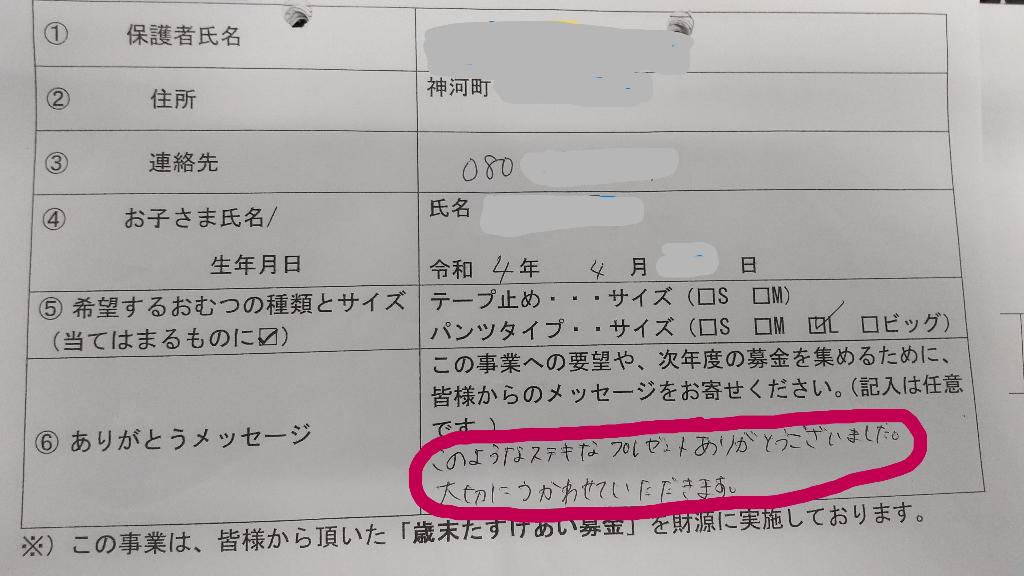 ① 保護者氏名
② 住所 神河町
③ 連絡先 080
④ お子さま氏名/ 氏名
生年月日 令和 4年 4月 日
⑤ 希望するおむつの種類とサイズ テープ止め・・・サイズ（□S □M）
（当てはまるものに☑） パンツタイプ・・サイズ（□S □M ☑L □ビッグ）
この事業への要望や、次年度の募金を集めるために、
皆様からのメッセージをお寄せください。（記入は任意
⑥ ありがとうメッセージ です。）
このようなステキなプレゼントありがとうございました。
大切につかわせていただきます。
※）この事業は、皆様から頂いた「歳末たすけあい募金」を財源に実施しております。